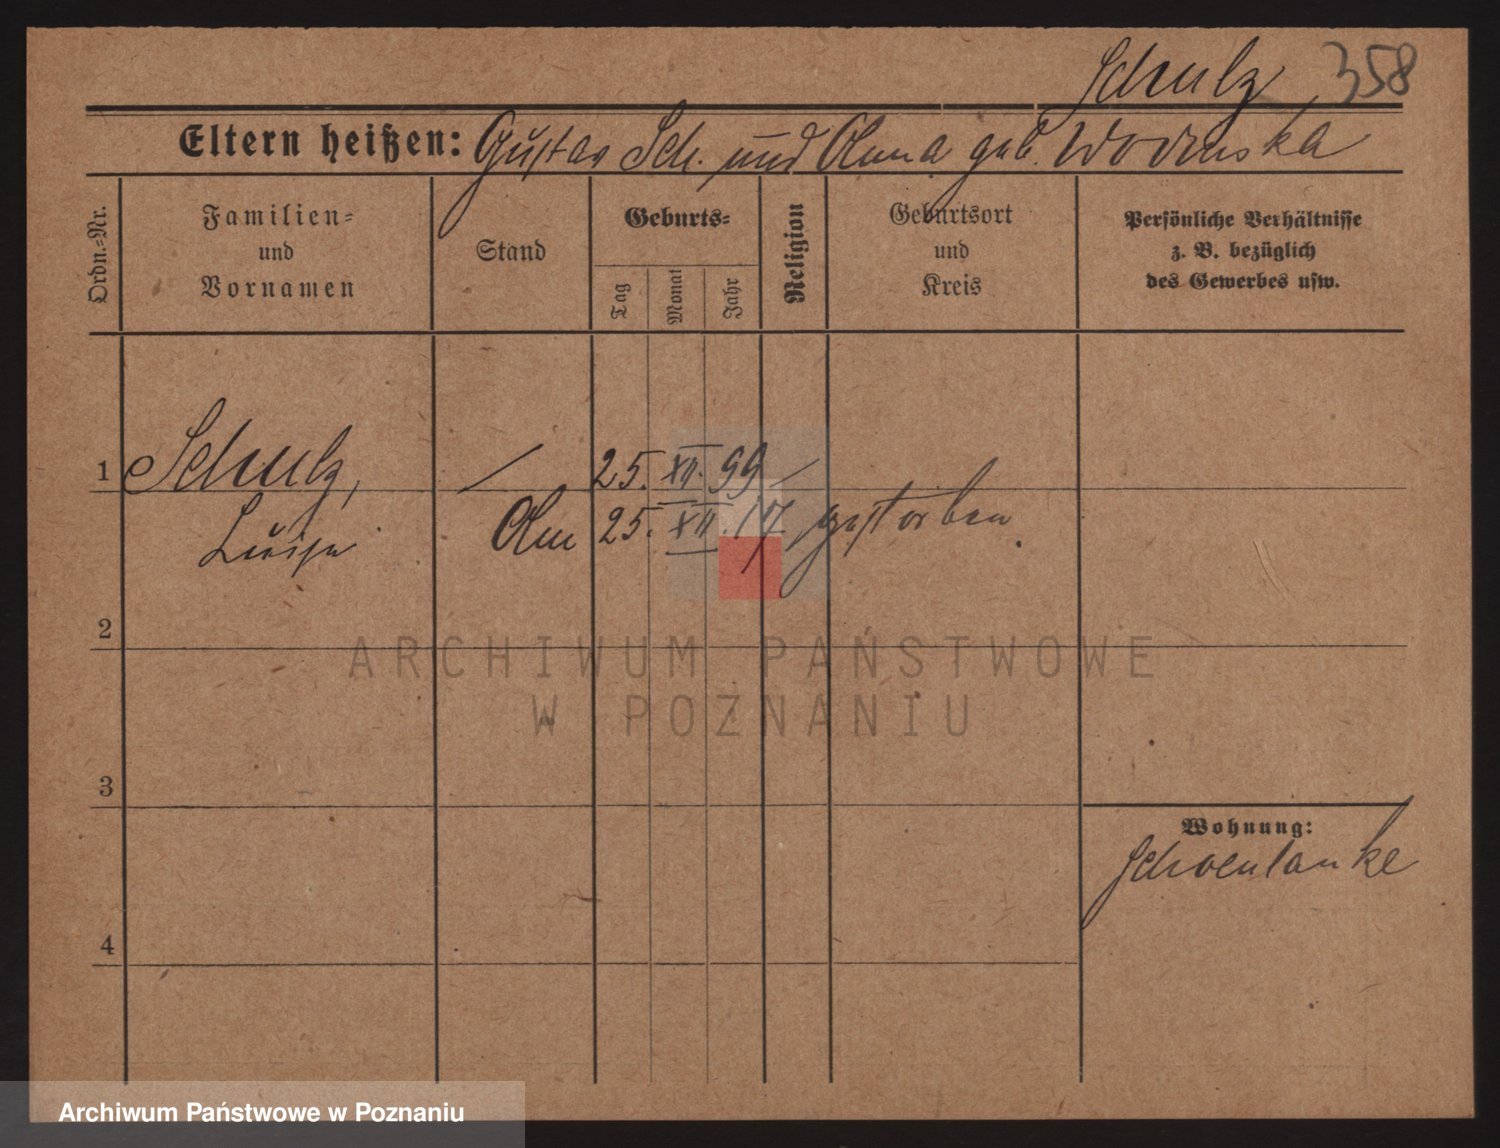 Schulz 358
Eltern heißen: Gustav Sch. und Anna geb. Wodenska
Ordn.=Nr.
Familien=
und
Vornamen
Stand
Geburts=
Tag
Monat
Jahr
Religion
Geburtsort
und
Kreis
Persönliche Verhältnisse
z. B. bezüglich
des Gewerbes usw.
1 Schulz, / 25. XII. 99 /
Luise Am 25. XII. 17 gestorben.
2
ARCHIWUM PAŃSTWOWE
W POZNANIU
3
Wohnung:
Schoenlanke
4
Archiwum Państwowe w Poznaniu